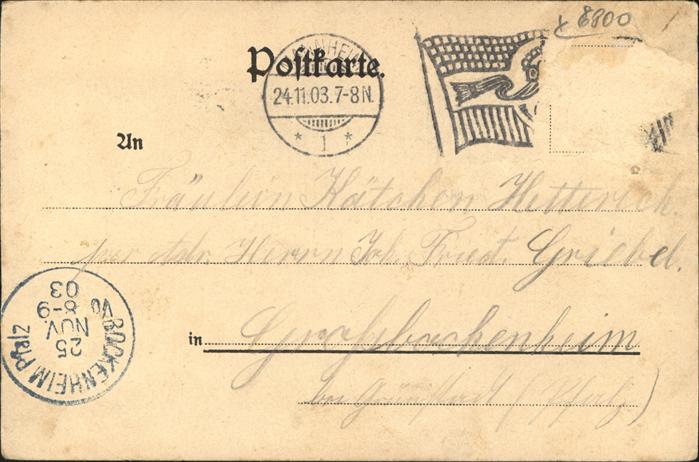 8800
Postkarte.
MANNHEIM
24.11.03.7-8N.
* 1 *
An
Fräulein Kätchen Hetterich.
per Adr. Herrn Joh. Fried. Griebel.
in Großbockenheim
bei Grünstadt (Pfalz)
BOCKENHEIM Pfalz
25
NOV.
8-9
03